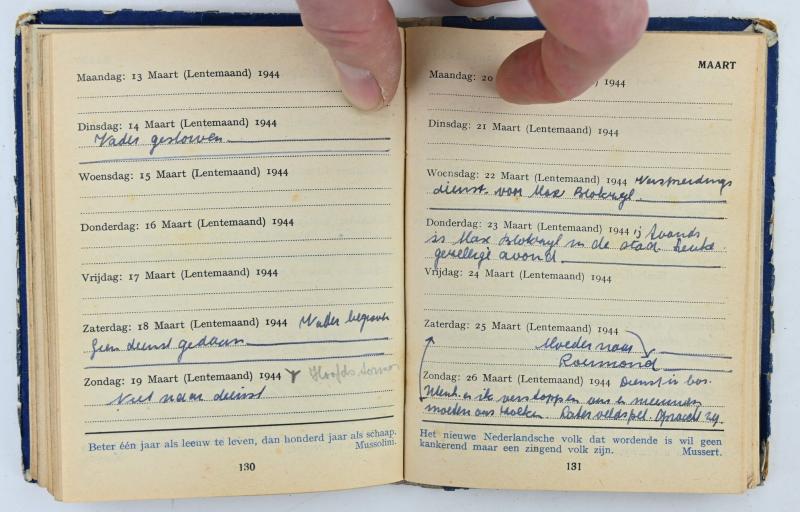 Maandag: 13 Maart (Lentemaand) 1944
Dinsdag: 14 Maart (Lentemaand) 1944
Vader gestorven
Woensdag: 15 Maart (Lentemaand) 1944
Donderdag: 16 Maart (Lentemaand) 1944
Vrijdag: 17 Maart (Lentemaand) 1944
Zaterdag: 18 Maart (Lentemaand) 1944 Vader begraven
Geen dienst gedaan
Zondag: 19 Maart (Lentemaand) 1944
Niet naar dienst
Beter één jaar als leeuw te leven, dan honderd jaar als schaap.
Mussolini.
130
MAART
Maandag: 20 (Lentemaand) 1944
Dinsdag: 21 Maart (Lentemaand) 1944
Woensdag: 22 Maart (Lentemaand) 1944 Verspreidings
dienst voor Max Blokzyl
Donderdag: 23 Maart (Lentemaand) 1944 's Avonds
is Max Blokzyl in de stad Leuke
gezellige avond
Vrijdag: 24 Maart (Lentemaand) 1944
Zaterdag: 25 Maart (Lentemaand) 1944
Moeder naar
Roermond
Zondag: 26 Maart (Lentemaand) 1944 Dienst in bos.
en ik verstoppen ons en
moeten ons zoeken. Later veldspel.
Het nieuwe Nederlandsche volk dat wordende is wil geen
kankerend maar een zingend volk zijn. Mussert.
131